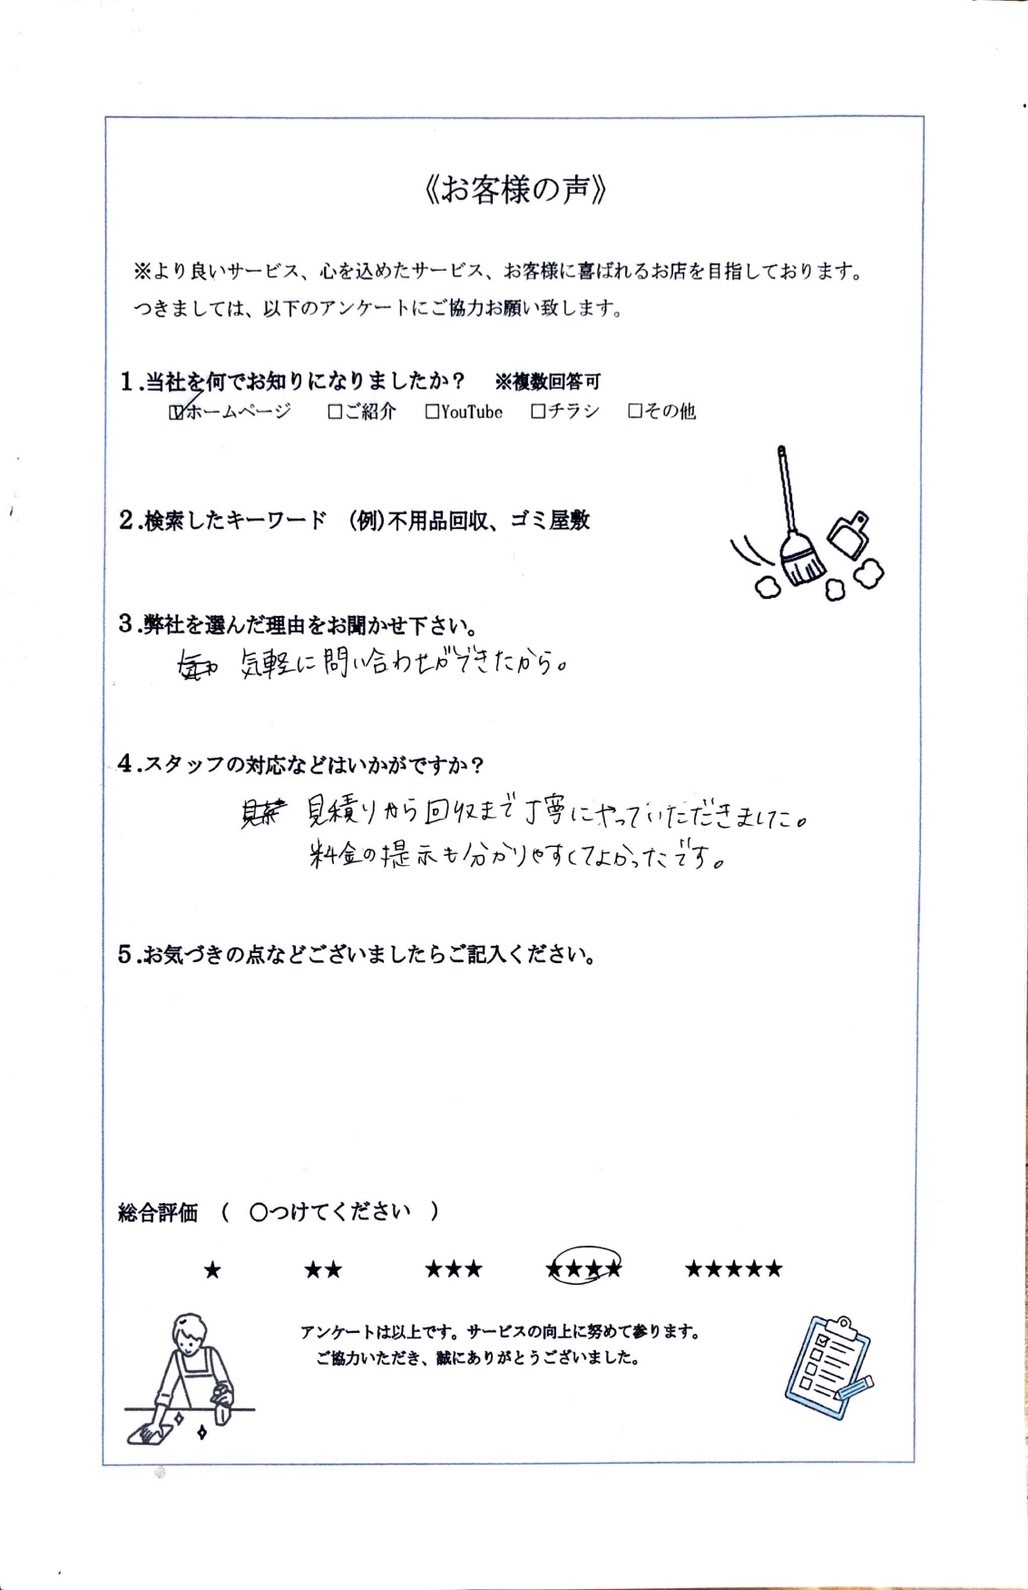 《お客様の声》
※より良いサービス、心を込めたサービス、お客様に喜ばれるお店を目指しております。
つきましては、以下のアンケートにご協力お願い致します。
1.当社を何でお知りになりましたか？　※複数回答可
☑ホームページ　□ご紹介　□YouTube　□チラシ　□その他
2.検索したキーワード　(例)不用品回収、ゴミ屋敷
3.弊社を選んだ理由をお聞かせ下さい。
気軽に問い合わせができたから。
4.スタッフの対応などはいかがですか？
見積りから回収まで丁寧にやっていただきました。
料金の提示も分かりやすくてよかったです。
5.お気づきの点などございましたらご記入ください。
総合評価　(　○つけてください　)
★　★★　★★★　★★★★　★★★★★
アンケートは以上です。サービスの向上に努めて参ります。
ご協力いただき、誠にありがとうございました。